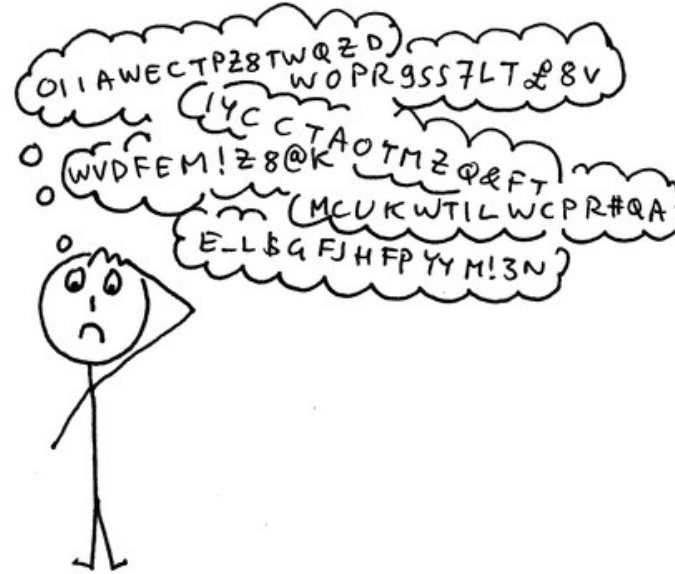 OIIAWECTPZ8TWQZD
WOPR9SS7LT£8V
IYCCTAOTMZQ&FT
WVDFEM!Z8@K
MCUKWTILWCPR#QA
E_L$GFJHFPYYM!3N